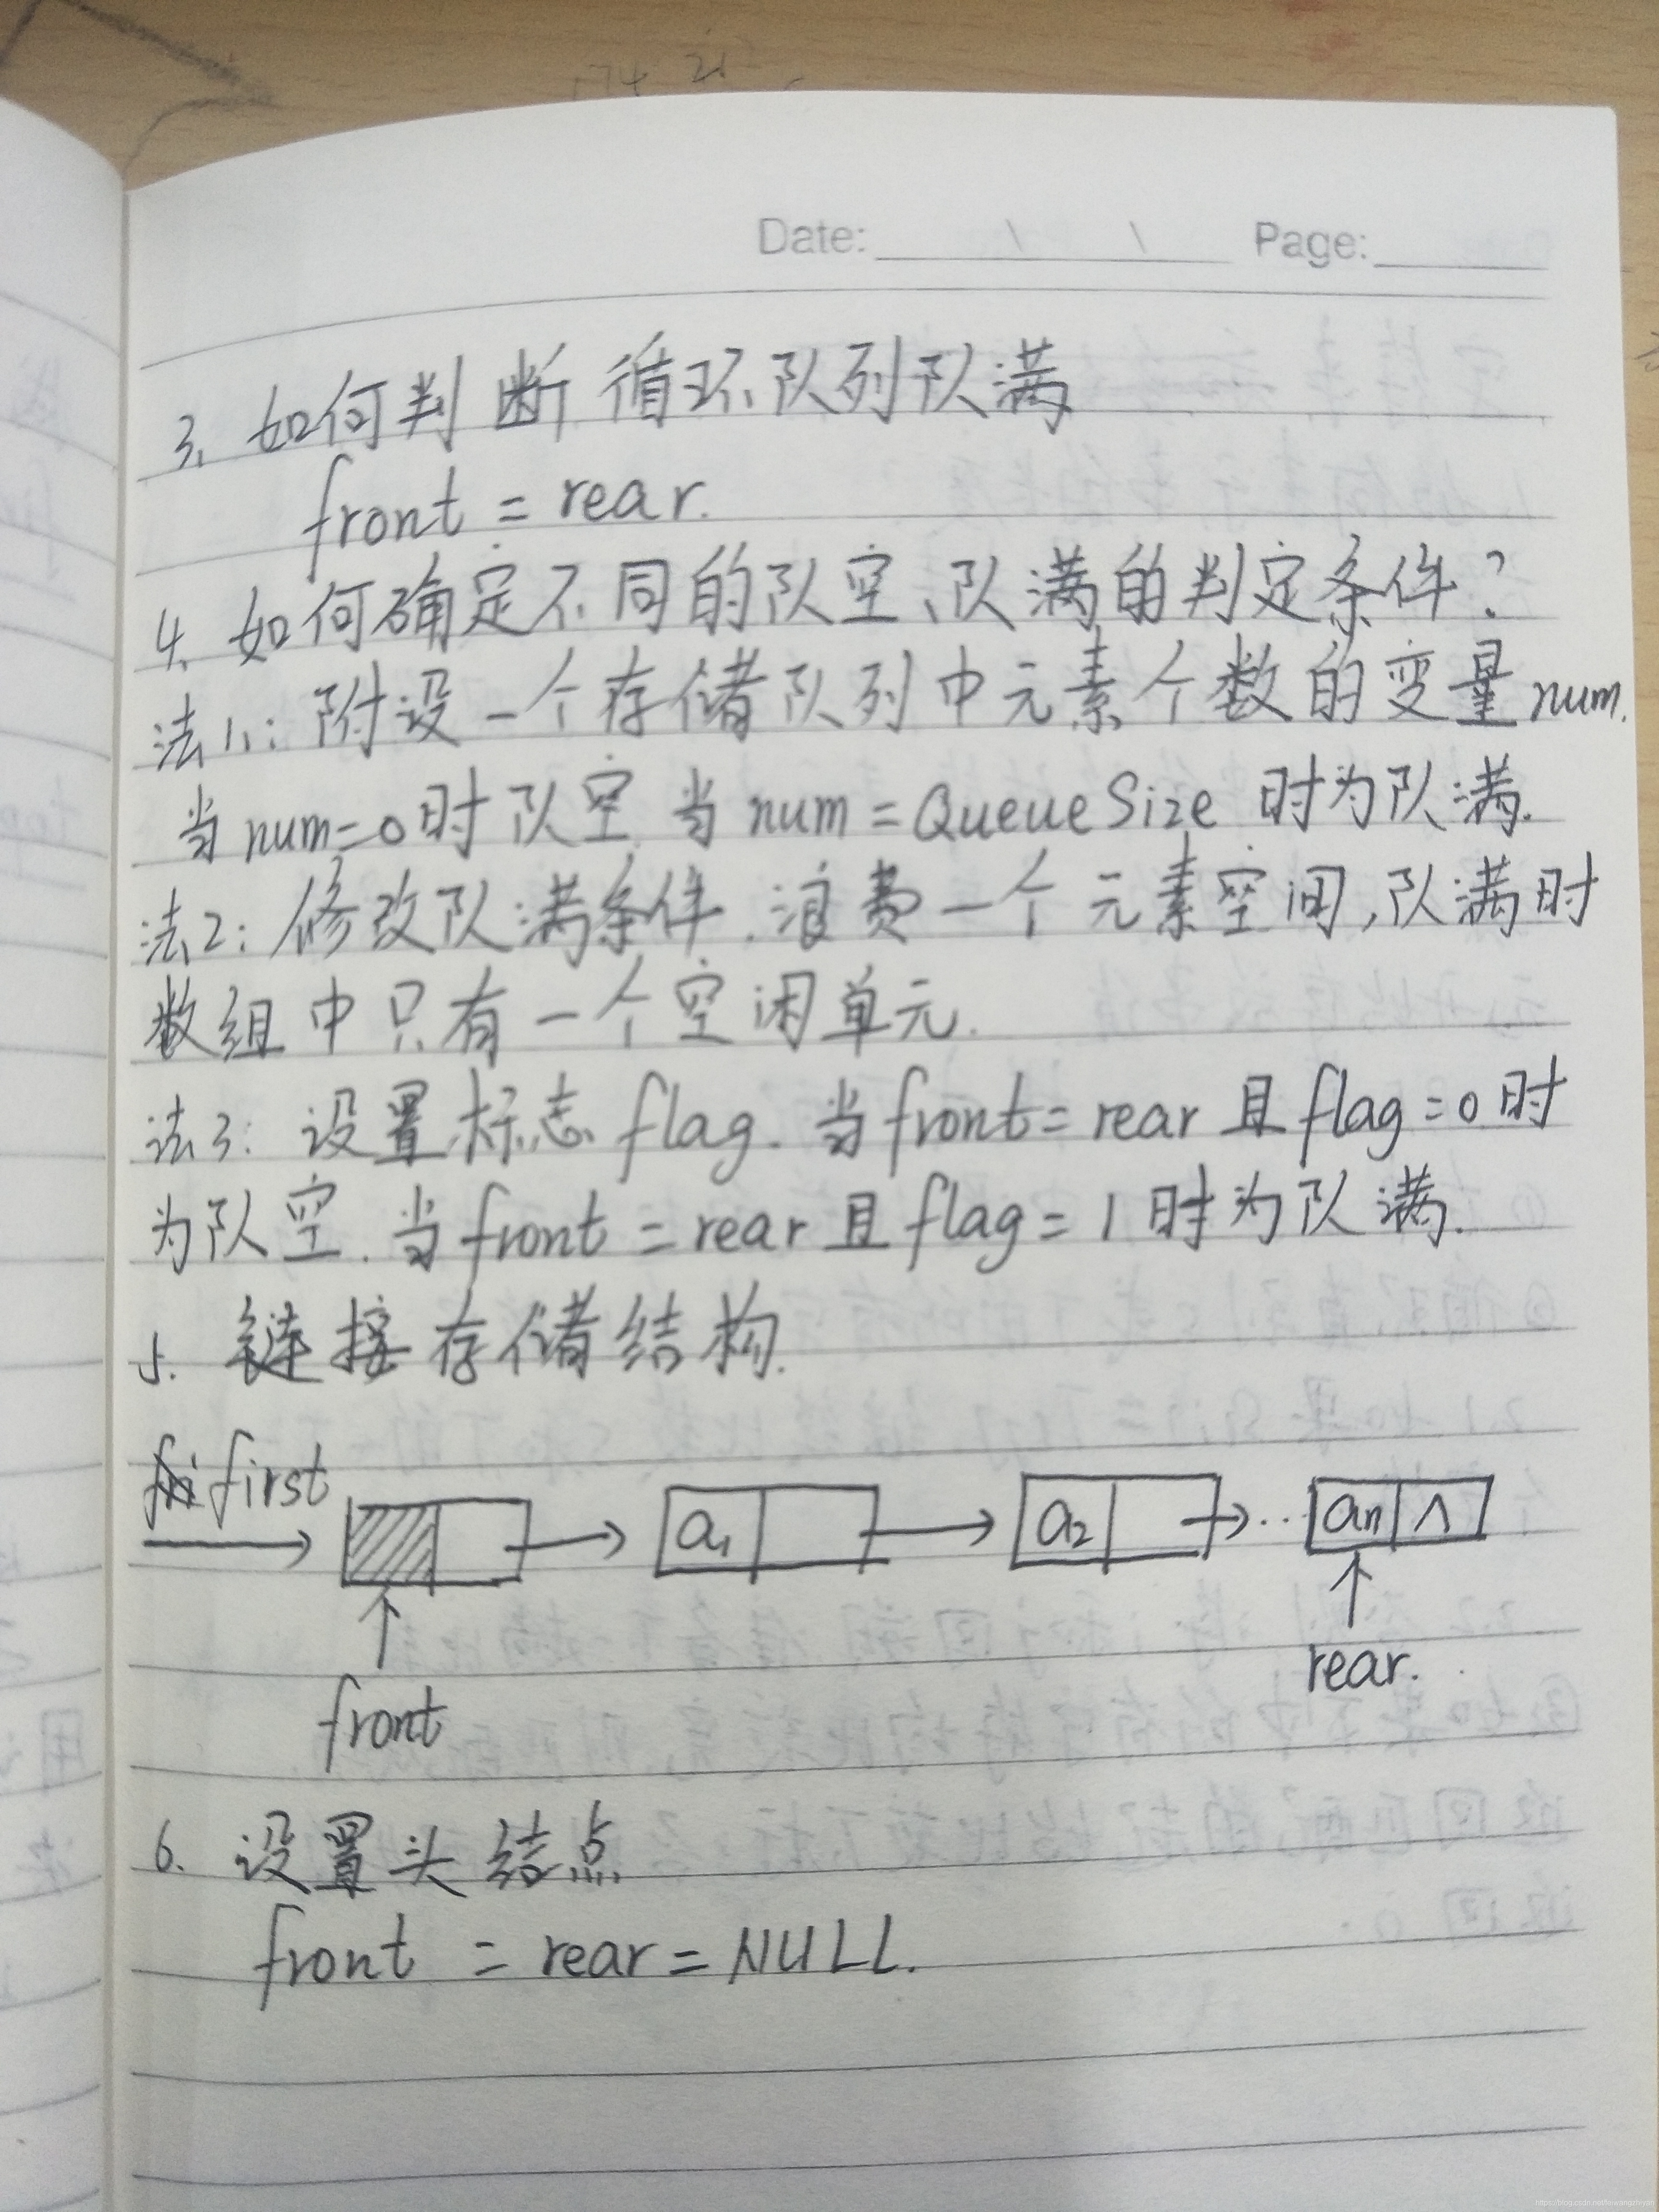 Date: \ \ Page:
3. 如何判断循环队列队满
front = rear.
4. 如何确定不同的队空、队满的判定条件?
法1.: 附设一个存储队列中元素个数的变量num.
当num=0时队空 当num=QueueSize 时为队满.
法2: 修改队满条件.浪费一个元素空间,队满时
数组中只有一个空闲单元.
法3: 设置标志flag. 当front=rear且flag=0时
为队空.当front=rear且flag=1时为队满.
5. 链接存储结构.
first
a1 a2 ... an ∧
front rear.
6. 设置头结点
front = rear = NULL.